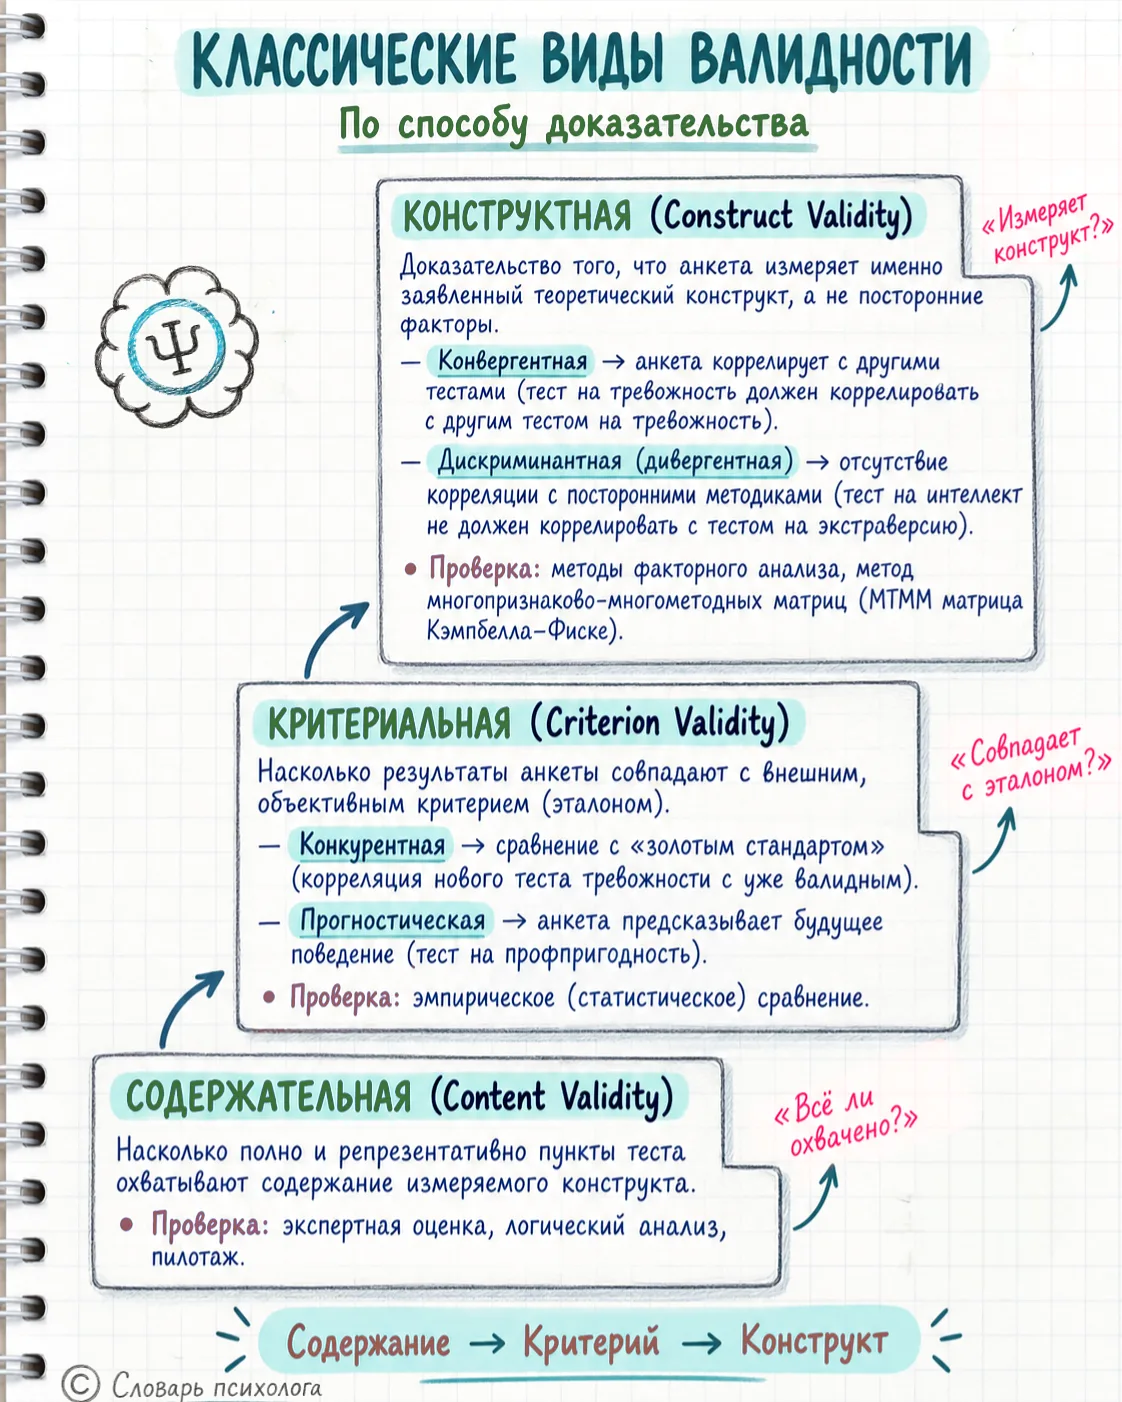 КЛАССИЧЕСКИЕ ВИДЫ ВАЛИДНОСТИ
По способу доказательства
КОНСТРУКТНАЯ (Construct Validity)
«Измеряет
конструкт?»
Доказательство того, что анкета измеряет именно
заявленный теоретический конструкт, а не посторонние
факторы.
— Конвергентная → анкета коррелирует с другими
тестами (тест на тревожность должен коррелировать
с другим тестом на тревожность).
— Дискриминантная (дивергентная) → отсутствие
корреляции с посторонними методиками (тест на интеллект
не должен коррелировать с тестом на экстраверсию).
• Проверка: методы факторного анализа, метод
многопризнаково-многометодных матриц (МТММ матрица
Кэмпбелла–Фиске).
Ψ
КРИТЕРИАЛЬНАЯ (Criterion Validity)
«Совпадает
с эталоном?»
Насколько результаты анкеты совпадают с внешним,
объективным критерием (эталоном).
— Конкурентная → сравнение с «золотым стандартом»
(корреляция нового теста тревожности с уже валидным).
— Прогностическая → анкета предсказывает будущее
поведение (тест на профпригодность).
• Проверка: эмпирическое (статистическое) сравнение.
СОДЕРЖАТЕЛЬНАЯ (Content Validity)
«Всё ли
охвачено?»
Насколько полно и репрезентативно пункты теста
охватывают содержание измеряемого конструкта.
• Проверка: экспертная оценка, логический анализ,
пилотаж.
Содержание → Критерий → Конструкт
© Словарь психолога